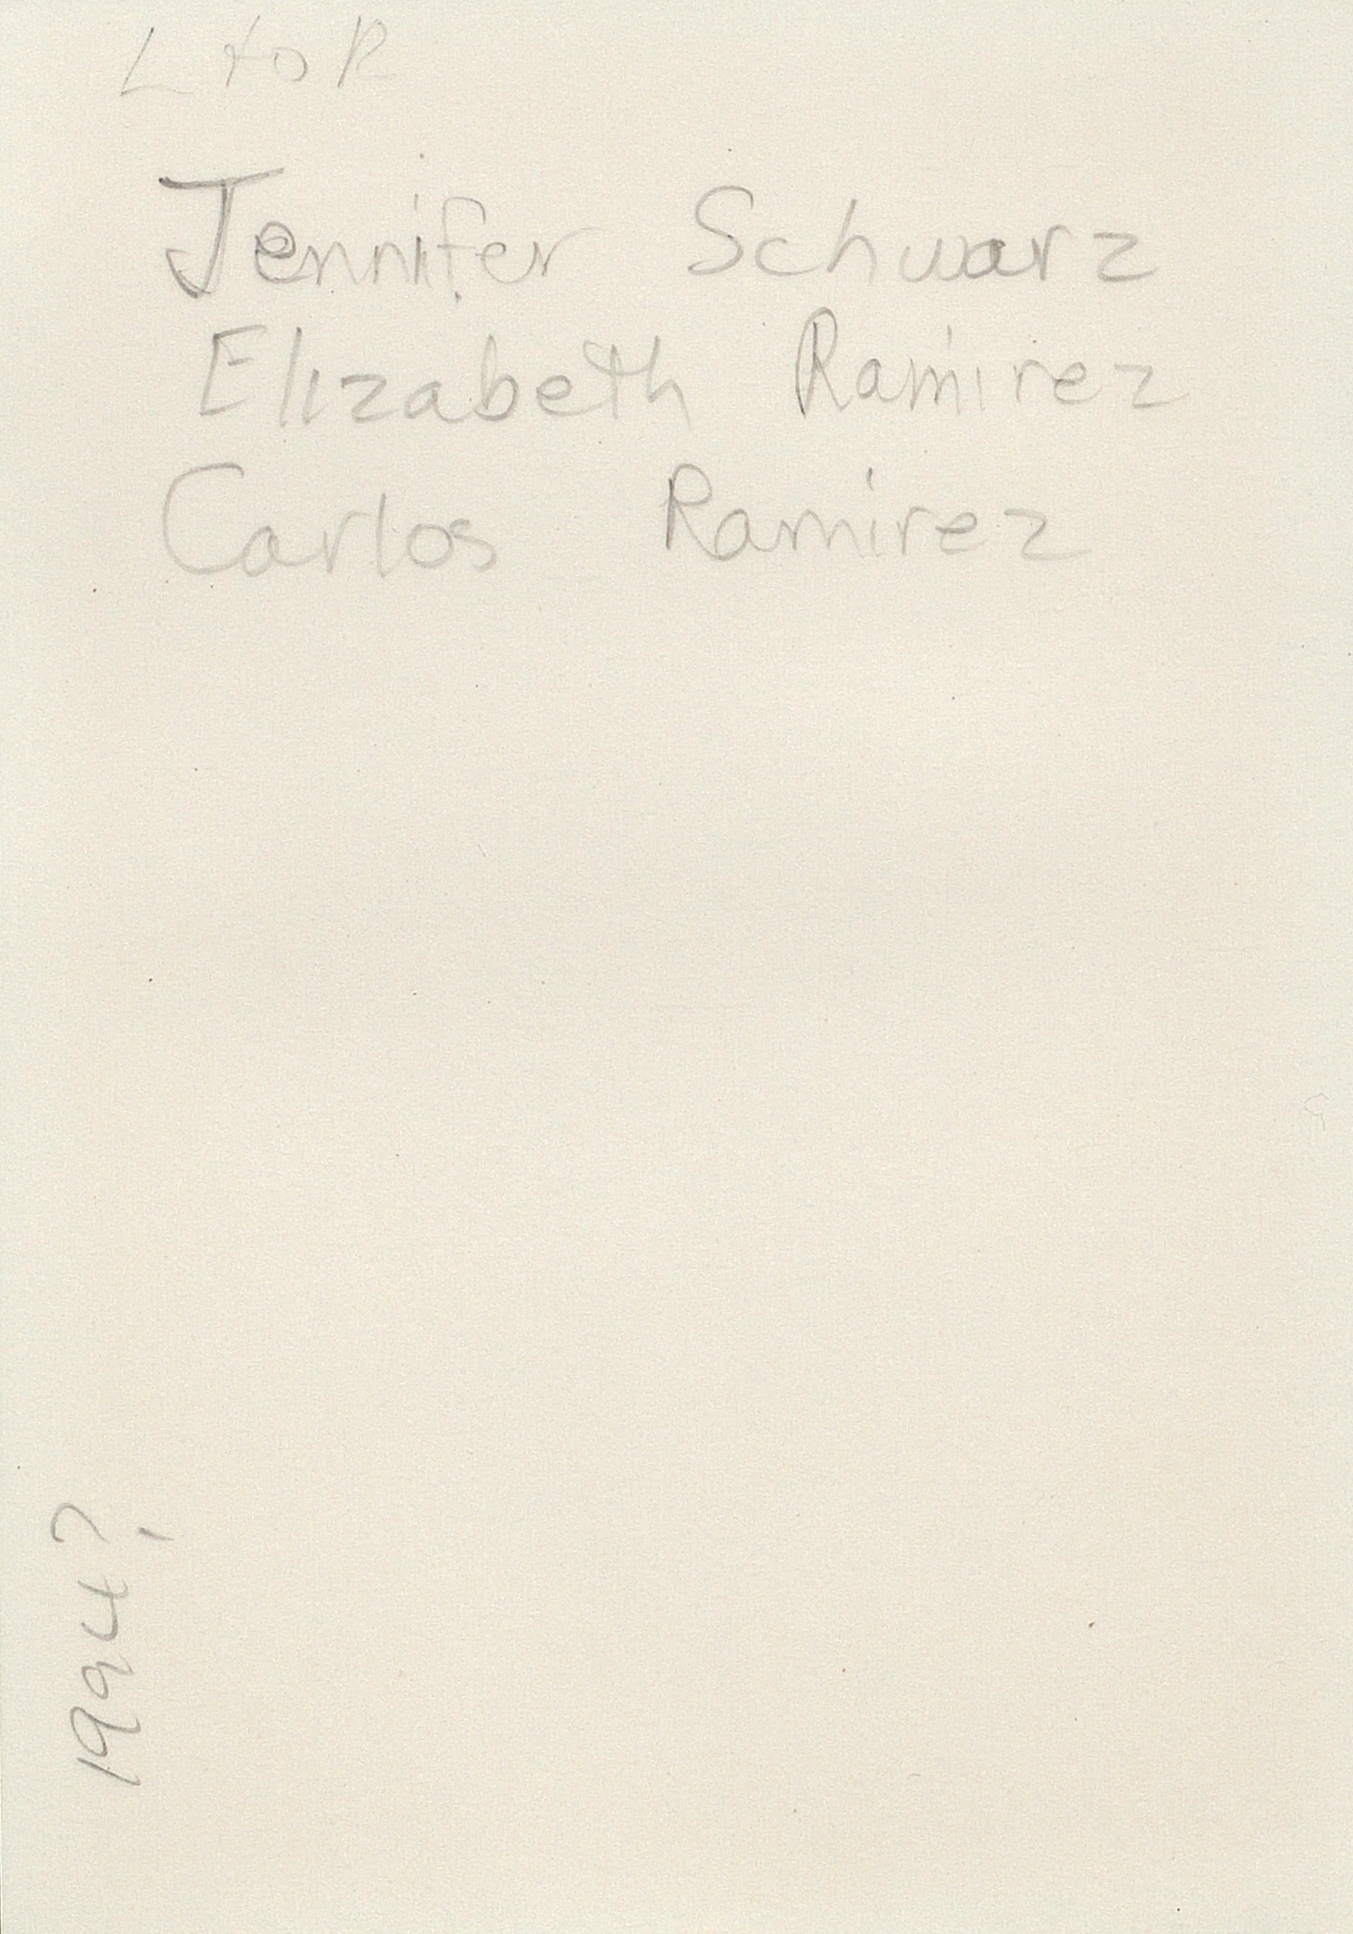 L to R
Jennifer Schwarz
Elizabeth Ramirez
Carlos Ramirez
1994?